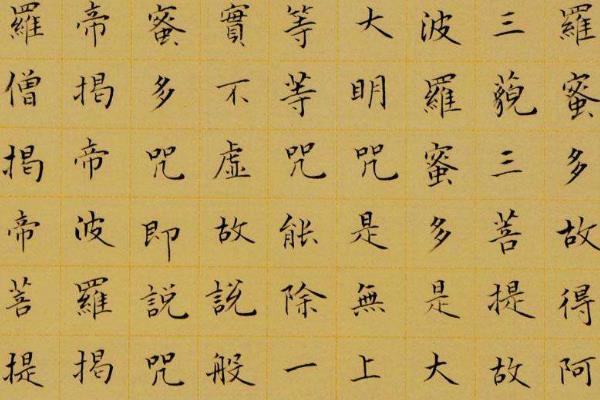 羅蜜多故得阿
三藐三菩提故
波羅蜜多是大
大明咒是無上
等等咒能除一
實不虛故說般
蜜多咒即說咒
帝揭帝波羅揭
羅僧揭帝菩提